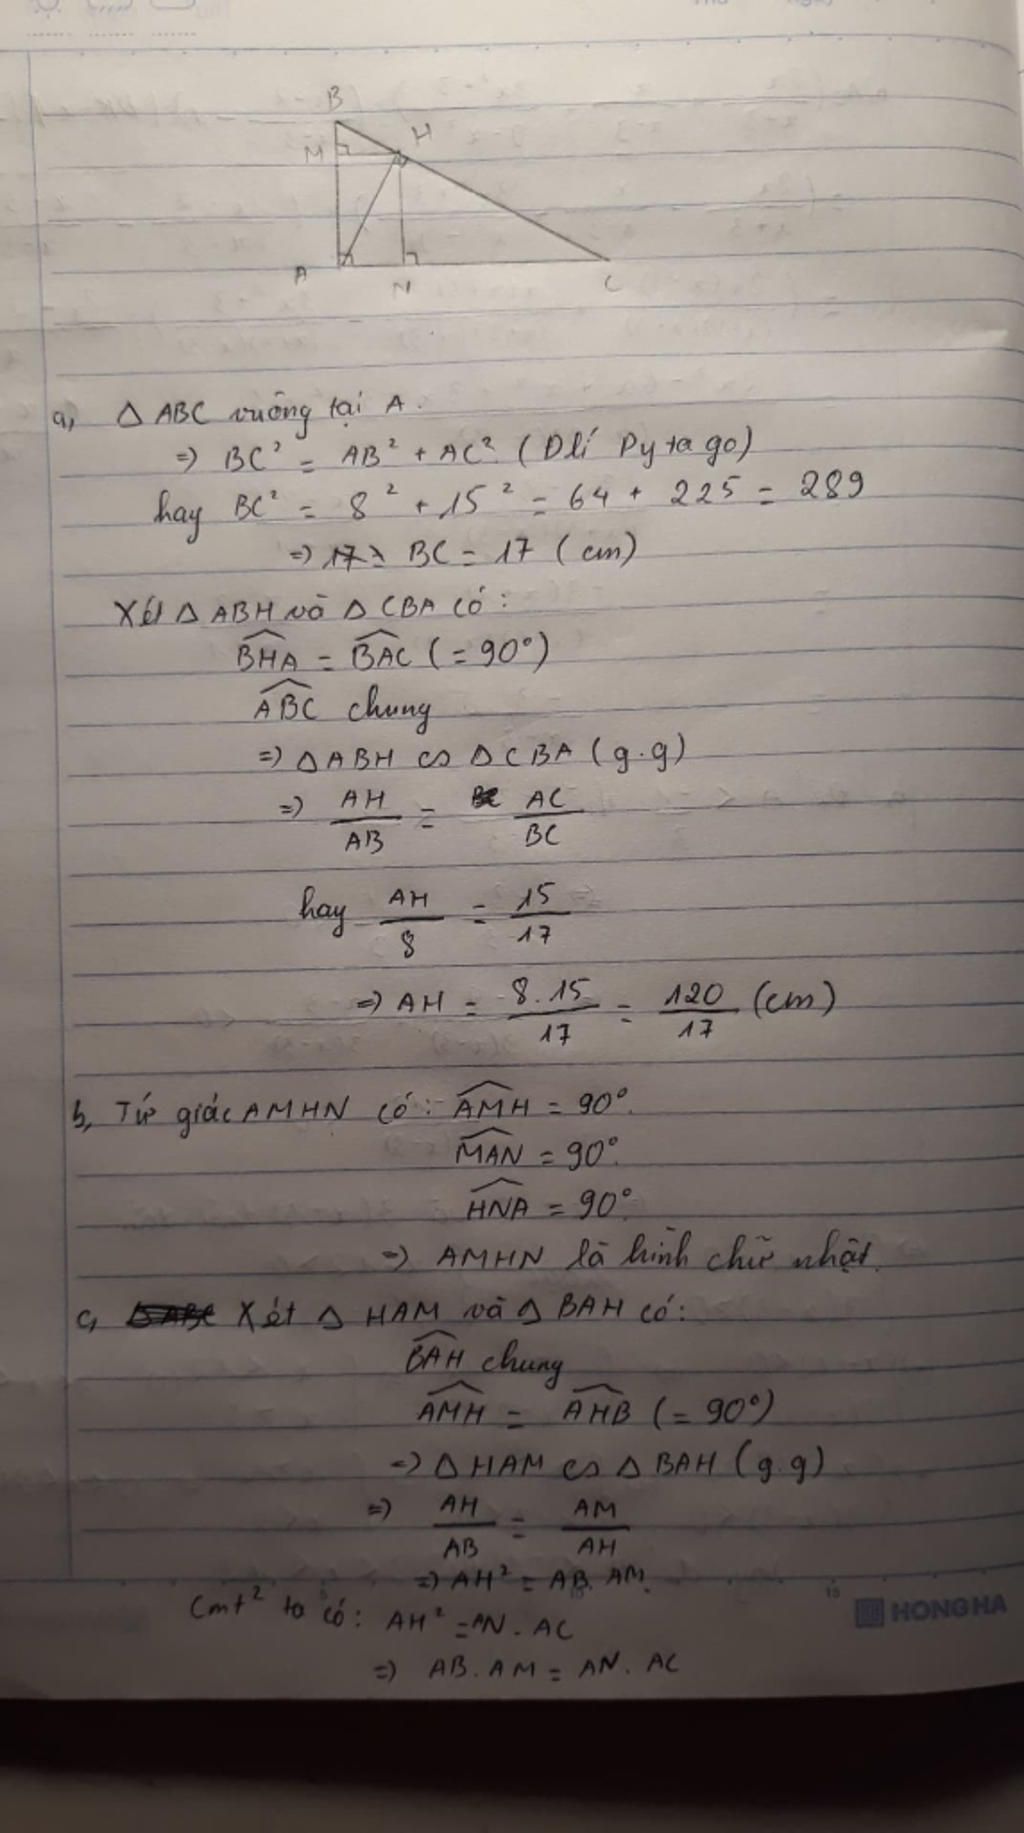 B
M H
A N C
a, Δ ABC vuông tại A.
=> BC² = AB² + AC² (Đlí Pytago)
hay BC² = 8² + 15² = 64 + 225 = 289
=> BC = 17 (cm)
Xét Δ ABH và Δ CBA có:
BHA = BAC (= 90°)
ABC chung
=> Δ ABH ∽ Δ CBA (g.g)
=> AH/AB = AC/BC
hay AH/8 = 15/17
=> AH = 8.15/17 = 120/17 (cm)
b, Tứ giác AMHN có: AMH = 90°.
MAN = 90°.
HNA = 90°.
=> AMHN là hình chữ nhật.
c, Xét Δ HAM và Δ BAH có:
BAH chung
AMH = AHB (= 90°)
=> Δ HAM ∽ Δ BAH (g.g)
=> AH/AB = AM/AH
=> AH² = AB.AM.
Cmt² ta có: AH² = AN.AC
HONG HA
=> AB.AM = AN.AC